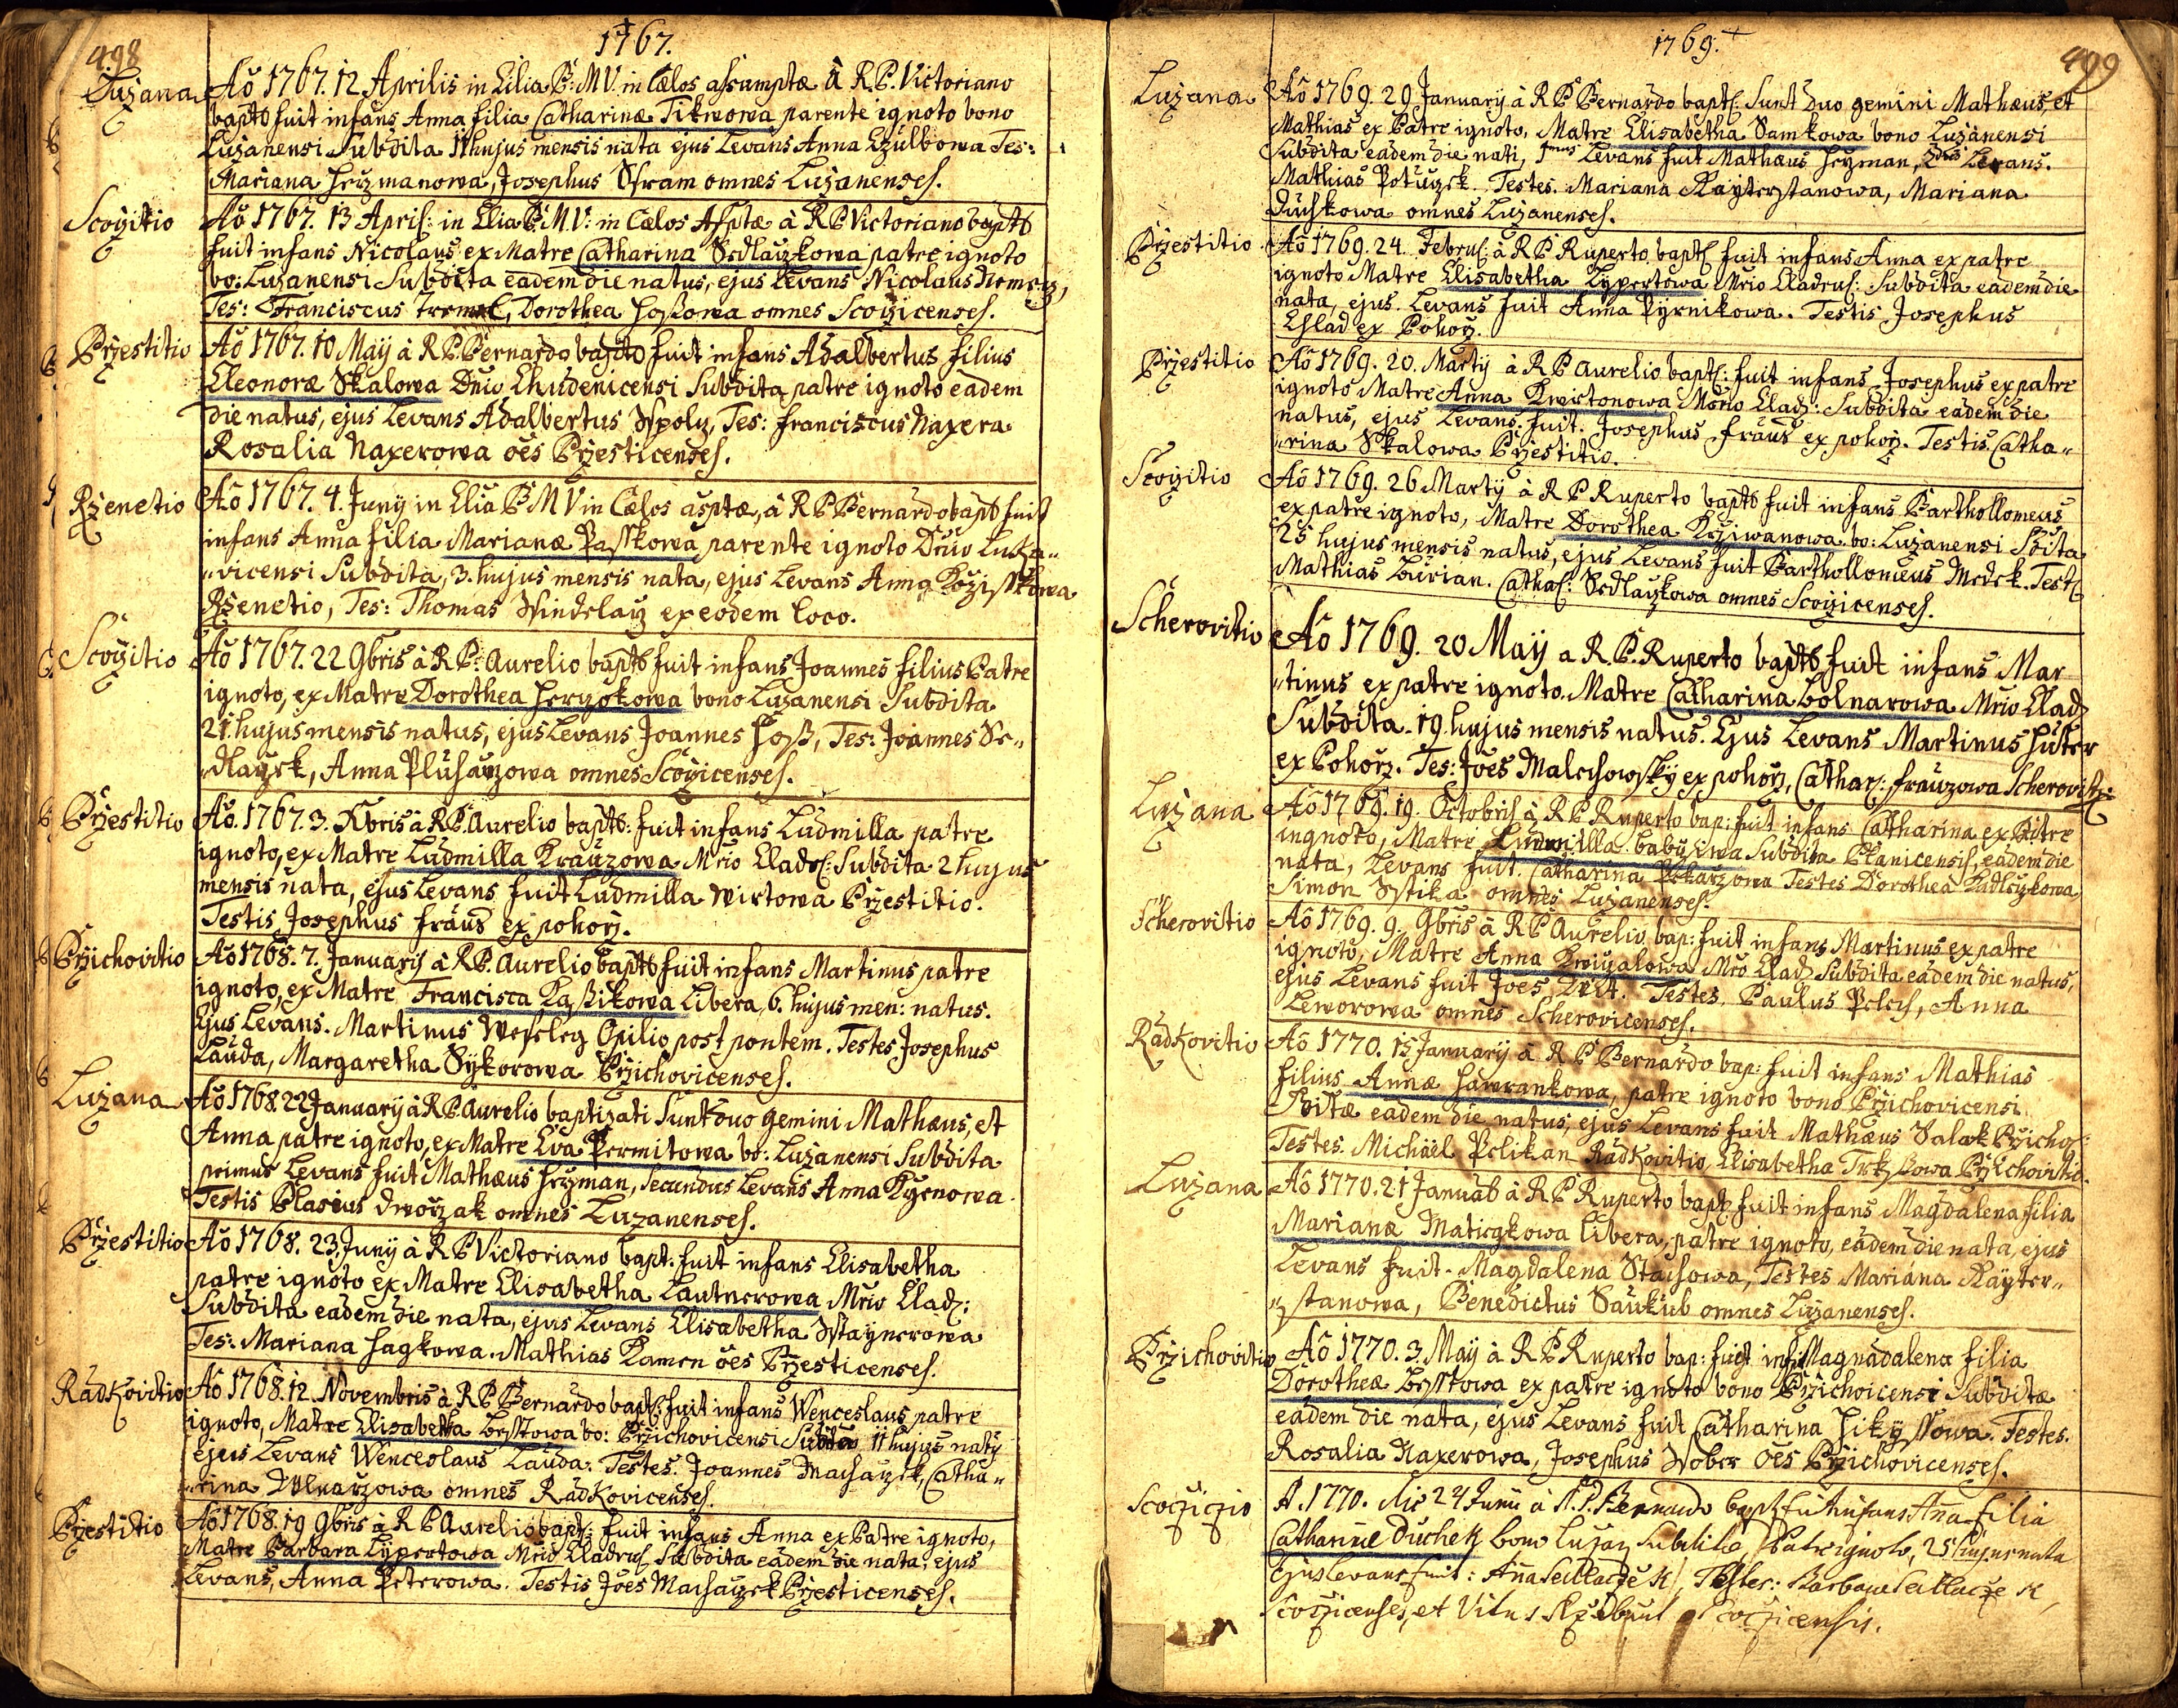 498
1767.
Luzana Aõ 1767. 12 Aprilis in Eilia B: M V. in Cælos assumptæ à R P. Victoriano
bapts fuit infans Anna filia Catharinæ Tikwowa parente ignoto bono
Luzanensi Subdita 11 hujus mensis nata ejus Levans Anna Czulbowa Tes:
Mariana Herzmanowa, Josephus Sfram omnes Luzanenses.
Scozitio Aõ 1767. 13 Apris: in Elia B: M. V: in Cælos Assptæ à R P Victoriano bapts
fuit infans Nicolaus ex Matre Catharina Sedlaczkowa patre ignoto
bo: Luzanensi Subdita eadem die natus, ejus Levans Nicolaus Nemecz,
Tes: Franciscus Tremel, Dorothea Hoßowa omnes Scozicenses.
Przestitio Aõ 1767. 10 Maÿ à R P. Bernardo bapts fuit infans Adalbertus filius
Eleonoræ Skalowa Dnio Chudenicensi Subdita patre ignoto eadem
die natus, ejus Levans Adalbertus Wpolu, Tes: Franciscus Naxera
Rosalia Naxerowa oẽs Przesticenses.
Rzenetio Aõ 1767. 4. Junÿ in Elia B M V in Cælos asptæ, à R P Bernardo bapts fuit
infans Anna filia Marianæ Passkowa parente ignoto Dnio Luka„
„vicensi Subdita, 3. hujus mensis nata, ejus Levans Anna Kozisskowa
Rzenetio, Tes: Thomas Windelaz ex eodem loco.
Scozitio Aõ 1767. 22 9bris à R P. Aurelio bapts fuit infans Joannes filius Patre
ignoto, ex Matre Dorothea Herzokowa bono Luzanensi Subdita
21. hujus mensis natus, ejus Levans Joannes Hoß, Tes: Joannes Se„
„dlaczek, Anna Plusarzowa omnes Scozicenses.
Przestitio Aõ. 1767. 3. Xbris à R P. Aurelio bapts: fuit infans Ludmilla patre
ignoto, ex Matre Ludmilla Krauzowa Mrio Clads: Subdita 2 hujus
mensis nata, ejus Levans fuit Ludmilla Wirtowa Przestitio.
Testis Josephus Fraus ex pohorz.
Przichovitio Aõ 1768. 7. Januarÿ à R P. Aurelio bapts fuit infans Martinus patre
ignoto, ex Matre Francisca Kaßikowa Libera, 6. hujus men: natus.
Ejus Levans. Martinus Weseley Opilio post pontem. Testes Josephus
Lauda, Margaretha Sykorowa Przichovicenses.
Luzana Aõ 1768. 22 Januarÿ à R P. Aurelio baptizati Sunt duo gemini Mathæus, et
Anna patre ignoto, ex Matre Eva Permitowa bo: Luzanensi Subdita
primus Levans fuit Mathæus Herzman, Secundus Levans Anna Kyrnowa
Testis Blasius Dworzak omnes Luzanenses.
Przestitio Aõ 1768. 23. Junÿ à R P Victoriano bapt: fuit infans Elisabetha
patre ignoto ex Matre Elisabetha Lautnerowa Mrio Clad:
Subdita eadem die nata, ejus Levans Elisabetha Wstaynerowa
Tes: Mariana Hagkowa. Mathias Kamen oẽs Przesticenses.
Radkovitio Aõ 1768. 12. Novembris à R P Bernardo bapt: fuit infans Wenceslaus patre
ignoto, Matre Elisabetha Besstowa bo: Przichovicensi Subdita 11 hujus naty
ejus Levans Wenceslaus Lauda. Testes. Joannes Machaczek, Catha„
„rina Wlnarzowa omnes Radkovicenses.
Przestitio Aõ 1768. 19 9bris à R P Aurelio bapt: fuit infans Anna ex Patre ignoto,
Matre Barbara Lypertowa Mrio Cladrus Subdita eadem die nata, ejus
Levans, Anna Peterowa. Testis Joẽs Machaczek Przesticenses.
1769.
499
Luzana Aõ 1769. 29 Januarÿ à R P Bernardo bapts: Sunt duo gemini Mathæus, et
Mathias ex Patre ignoto, Matre Elisabetha Samkowa bono Luzanensi
Subdita eadem die nati, 1mus Levans fuit Mathæus Herzman, 2dus Levans.
Mathias Potuzek. Testes. Mariana Kayterstanowa, Mariana
Duchkowa omnes Luzanenses.
Przestitio Aõ 1769. 24. Februs: à R P Ruperto bapts fuit infans Anna ex patre
ignoto Matre Elisabetha Lypertowa Mrio Cladrus: Subdita eadem die
nata, ejus Levans fuit Anna Pyrnikowa. Testis Josephus
Chlad ex Pohorz.
Przestitio Aõ 1769. 20. Martÿ à R P Aurelio bapts: fuit infans Josephus ex patre
ignoto Matre Anna Kwirtonowa Mrio Clad: Subdita eadem die
natus, ejus Levans fuit. Josephus Fraus ex pohorz. Testis. Catha„
„rina Skalowa Przestitio.
Scozitio Aõ 1769. 26 Martÿ à R P Ruperto bapts fuit infans Barthollomeus
ex patre ignoto, Matre Dorothea Krziwanowa bo: Luzanensi Sdita
25 hujus mensis natus, ejus Levans fuit Barthollomeus Medek. Test:
Mathias Burian. Cathas: Sedlaczkowa omnes Scozicenses.
Scherovitio Aõ 1769. 20 Maÿ a R. P. Ruperto bapts fuit infans Mar
„tinus ex patre ignoto. Matre Catharina Bolnarowa Mrio Clad
Subdita. 19. hujus mensis natus. Ejus Levans Martinus Huter
ex Pohorz. Tes: Joẽs Malechowskÿ ex pohorz, Cathar: Frauzowa Scherovitz:
Luzana Aõ 1769. 19. Octobris à R P Ruperto bap: fuit infans Catharina ex Patre
ingnoto, Matre Ludmilla Babuziwa Subdita Planicensis, eadem die
nata, Levans fuit. Catharina Pekarzowa Testes Dorothea Kadleczkowa
Simon Wstika omnes Luzanenses.
Scherovitio Aõ 1769. 9. 9bris à R P Aurelio bap: fuit infans Martinus ex patre
ignoto, Matre Anna Kreyzalowa Mrio Clad: Subdita eadem die natus,
ejus Levans fuit Joes Zeit. Testes. Paulus Pelech, Anna
Leworowa omnes Scherovicenses.
Radkovitio Aõ 1770. 15 Januarÿ à R P Bernardo bap: fuit infans Mathias
filius Annæ Hawrankowa, patre ignoto bono Przichovicensi
Sditæ eadem die natus, ejus Levans fuit Mathæus Salak Przichos:
Testes. Michäel Pelikan Radkovitio, Elisabetha Trkzßowa Przichovitio.
Luzana Aõ 1770. 21 Januab à R P Ruperto bapt: fuit infans Magdalena filia
Marianæ Matiegkowa Libera, patre ignoto, eadem die nata, ejus
Levans fuit. Magdalena Stachowa, Testes Mariana Kayter„
„stanowa, Benedictus Saukub omnes Luzanenses.
Przichovitio Aõ 1770. 3. Maÿ à R P Ruperto bap: fuit infs Magnadalena filia
Dorotheæ Besstowa ex patre ignoto bono Przichoicensi Subditæ
eadem die nata, ejus Levans fuit Catharina Hikyssowa. Testes.
Rosalia Naxerowa, Josephus Wober oẽs Przichovicenses.
Scoczizio A. 1770. die 24 Junii à R. P. Bernardo bapt: fuit infans Anna filia
Catharinæ Duchek bono Luzan Subditæ, Patre ignoto, 25 hujus nata
Ejus Levans fuit: Anna Sedlaczek, Testes: Barbara Sedlaczek
Scoczicenses, et Vitus Scoczicensis.